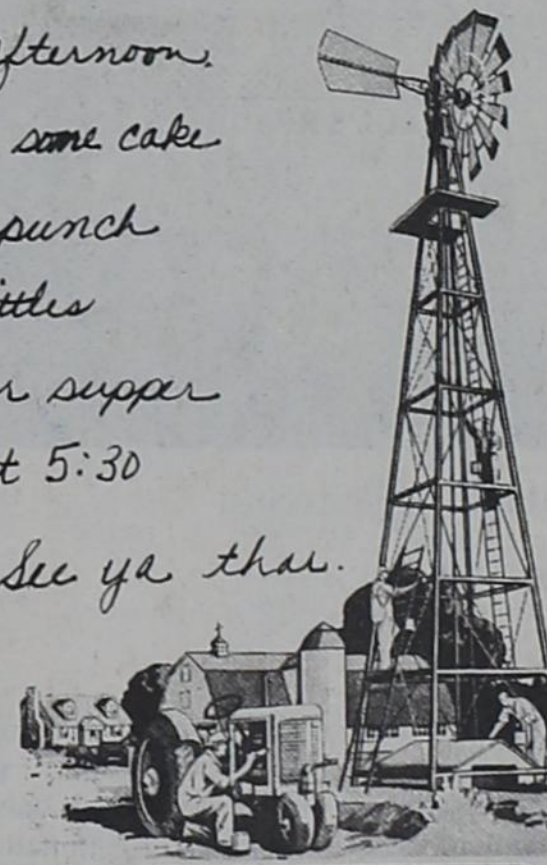 fternoon.
some cake
punch
ittles
r supper
t 5:30
See ya thar.